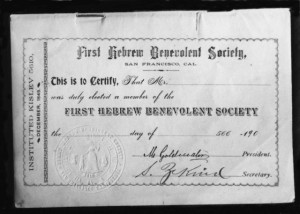 First Hebrew Benevolent Society,
SAN FRANCISCO, CAL.
This is to Certify, That Mr.
was duly elected a member of the
FIRST HEBREW BENEVOLENT SOCIETY
the day of 566 -190
M. Goldwater, President.
Secretary.
INSTITUTED KISLEV 5610,
DECEMBER, 1849.